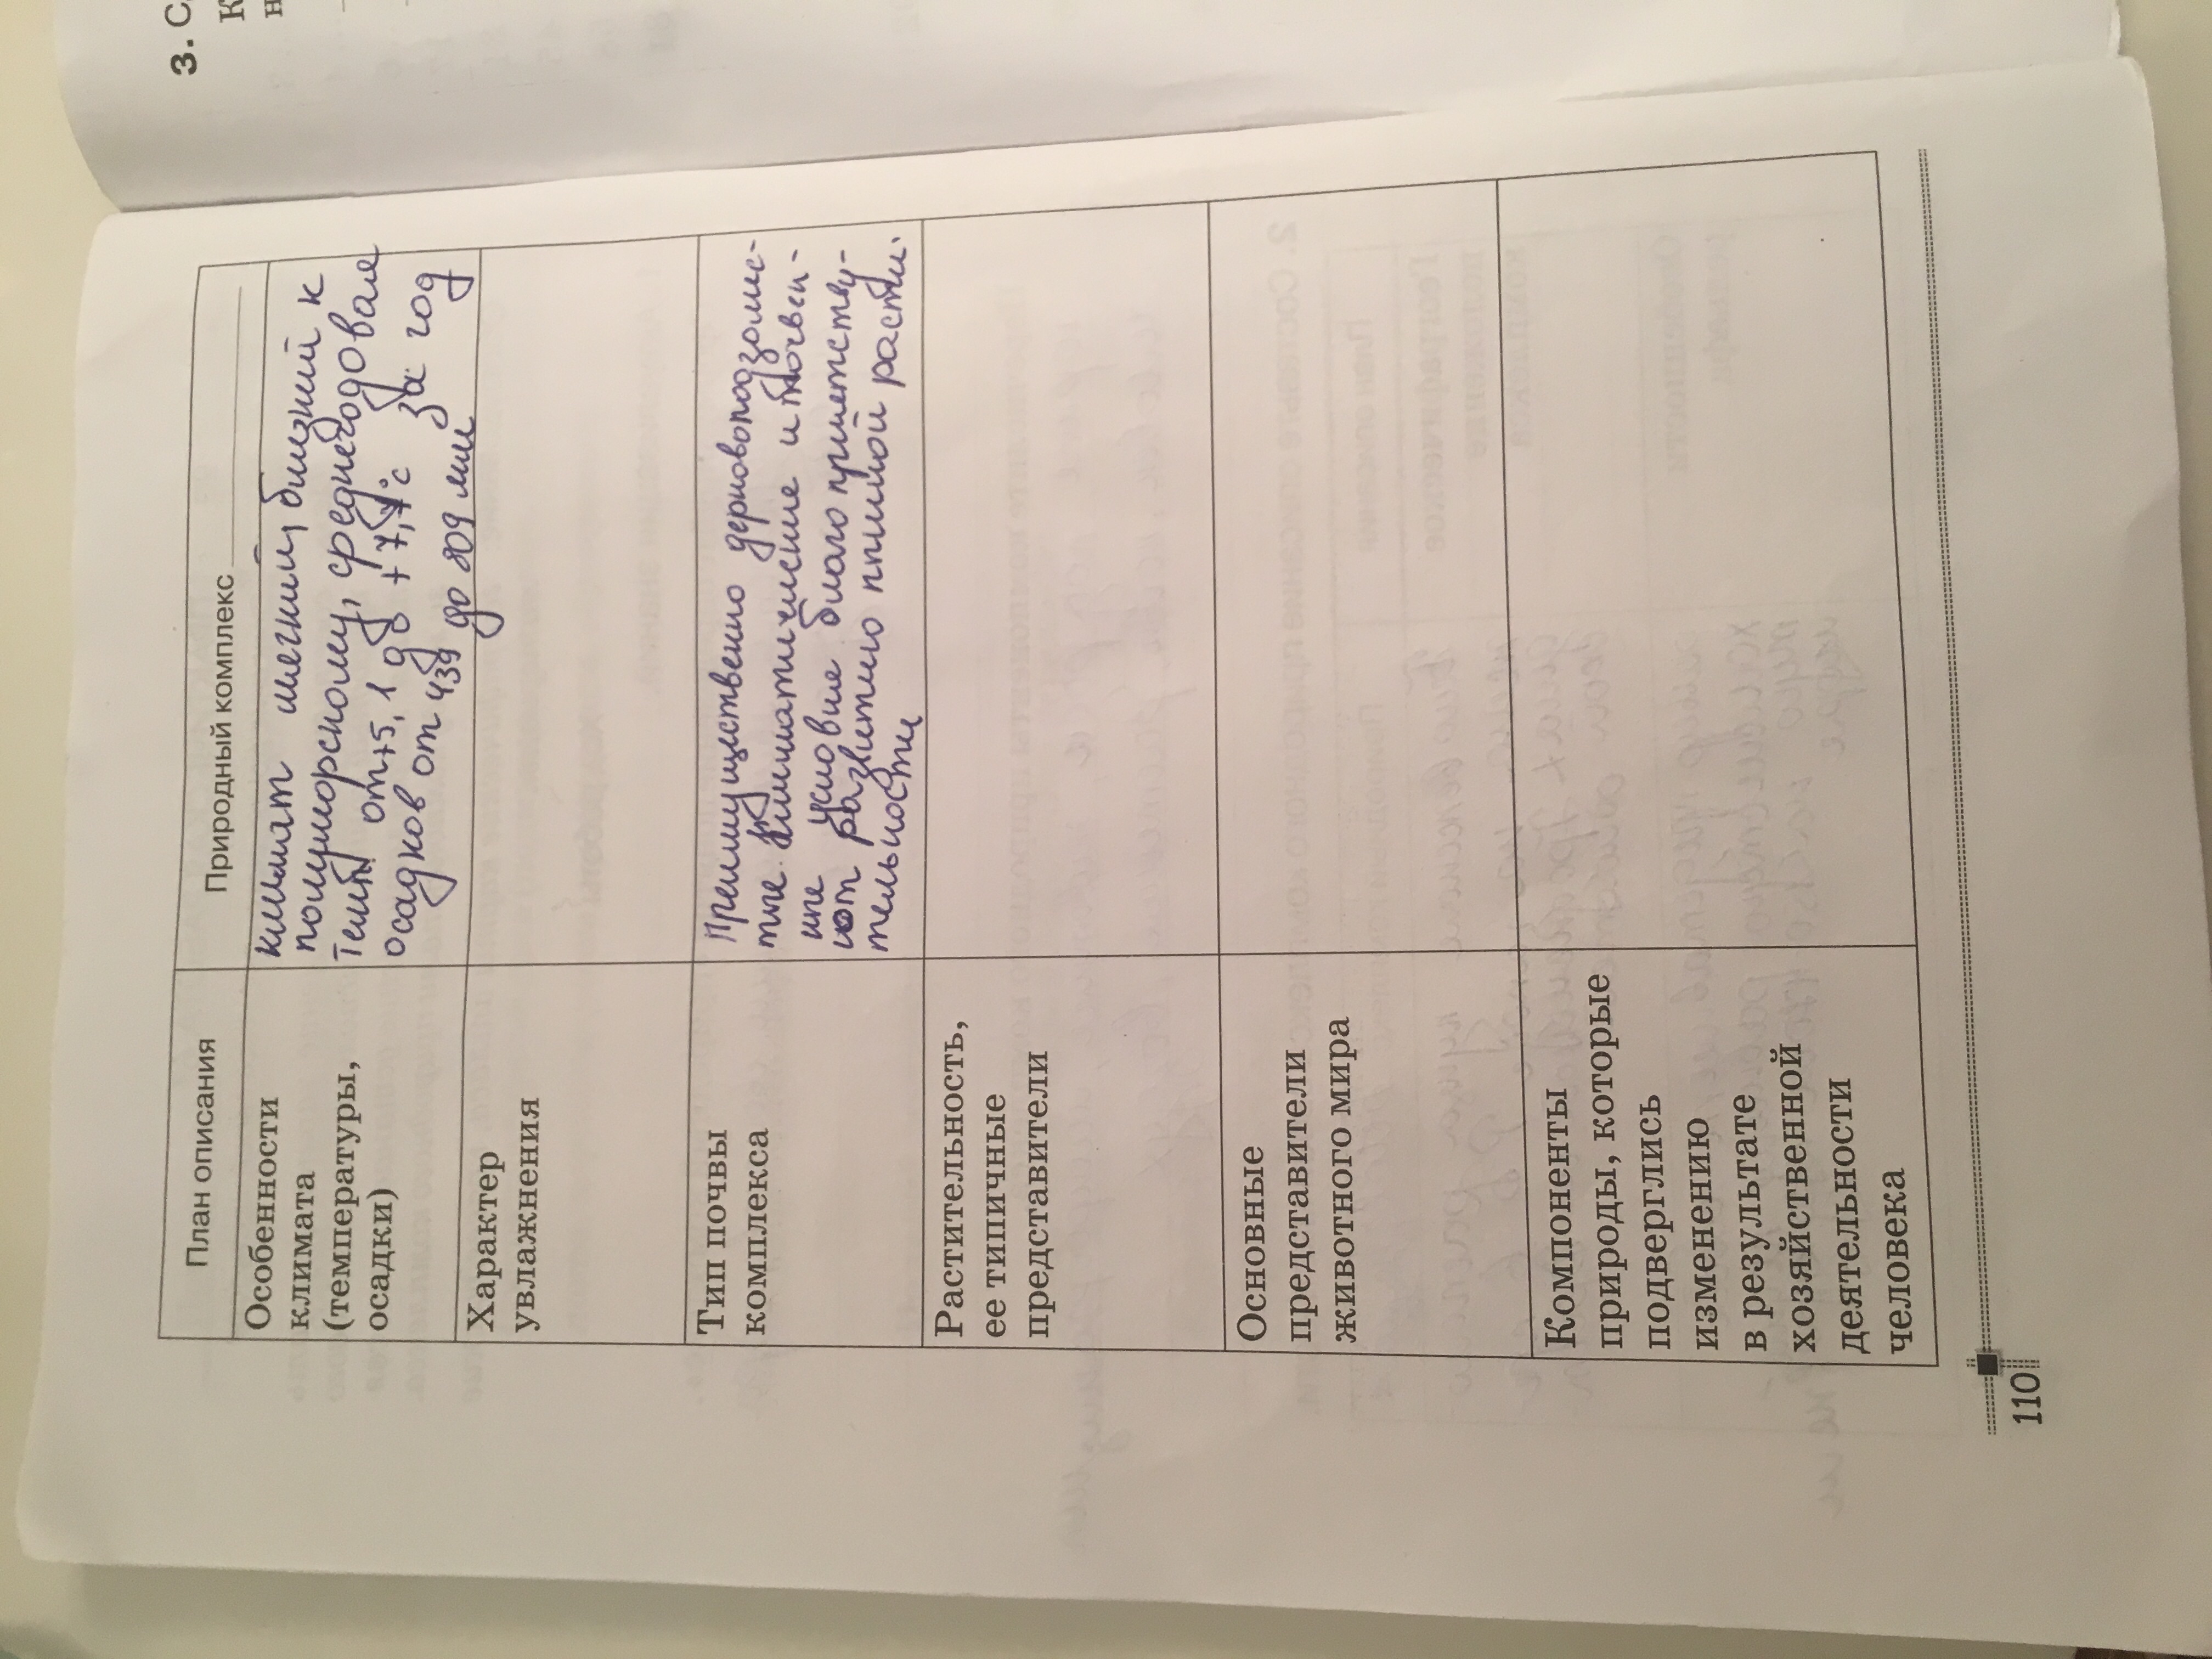 План описания
Природный комплекс
Особенности
климата
(температуры,
осадки)
климат мягкий, близкий к
полуморскому, среднегодовая
от +5,1 до +7,4°с за год
осадков от 439 до 809 мм
Характер
увлажнения
Тип почвы
комплекса
Преимущественно дерновоподзолис-
тые климатичиские и почвен-
ные условие благоприетству-
ют развитию пышной расти-
тельности
Растительность,
ее типичные
представители
Основные
представители
животного мира
Компоненты
природы, которые
подверглись
изменению
в результате
хозяйственной
деятельности
человека
110
3. С
К
н